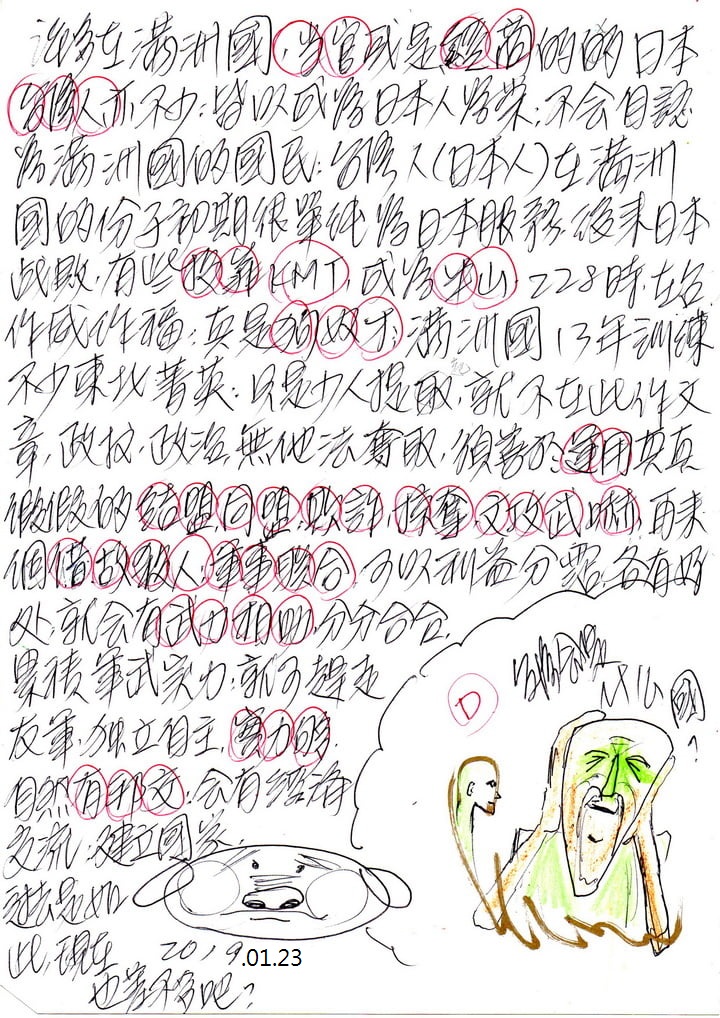 許多在滿洲國,当官或是經商的的日本
台僑人亦不少;皆以成為日本人為榮;不会自認
為滿洲國的國民;台僑人(日本人)在滿洲
國的份子初期很單純為日本服務,後來日本
战敗,有些投靠KMT,成為半山,228時,在台
作威作福;真是狗奴才;滿洲國13年訓練
不少東北菁英;只是少人提取,就不在此作文
章,政權,政治,無他法奪取,須善於運用真真
假假的結盟同盟,欺詐,掠奪,文攻武嚇,再來
個借故殺人;軍事联合,可以利益分霑,各有好
处,就会有武力相助,分分合合,
累積軍武实力;就可趕走
友軍,独立自主,實力夠,
自然有邦交,会有經濟
交流;建立國家,
過去是如
此,現在
也差不多吧?
2019.01.23
D
國?